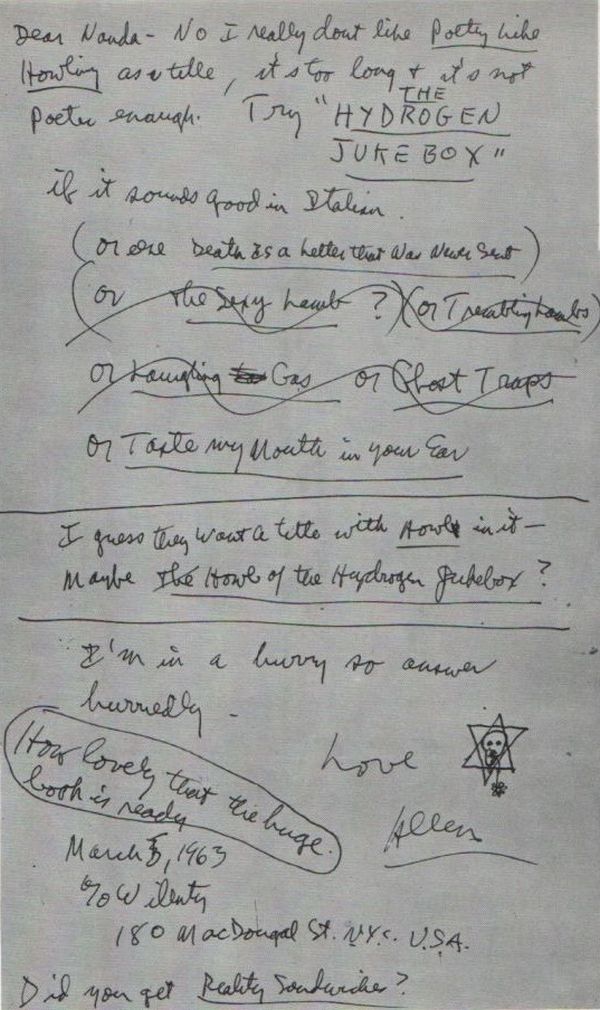 Dear Nanda - No I really dont like Poetry like
Howling as a title, it's too long & it's not
Poetic enough. Try "THE HYDROGEN
JUKEBOX"
if it sounds good in Italian.
(or else Death Is a Letter that Was Never Sent)
(or the Sexy Lamb ?) (or Trembling Lambs)
or Laughing Gas or Ghost Traps
or Taste my Mouth in your Ear
I guess they want a title with Howl in it -
Maybe The Howl of the Hydrogen Jukebox ?
I'm in a hurry so answer
hurriedly -
Love
Allen
How lovely that the huge
book is ready.
March 3, 1963
c/o Wilentz
180 MacDougal St. N.Y.C. U.S.A.
Did you get Reality Sandwiches?